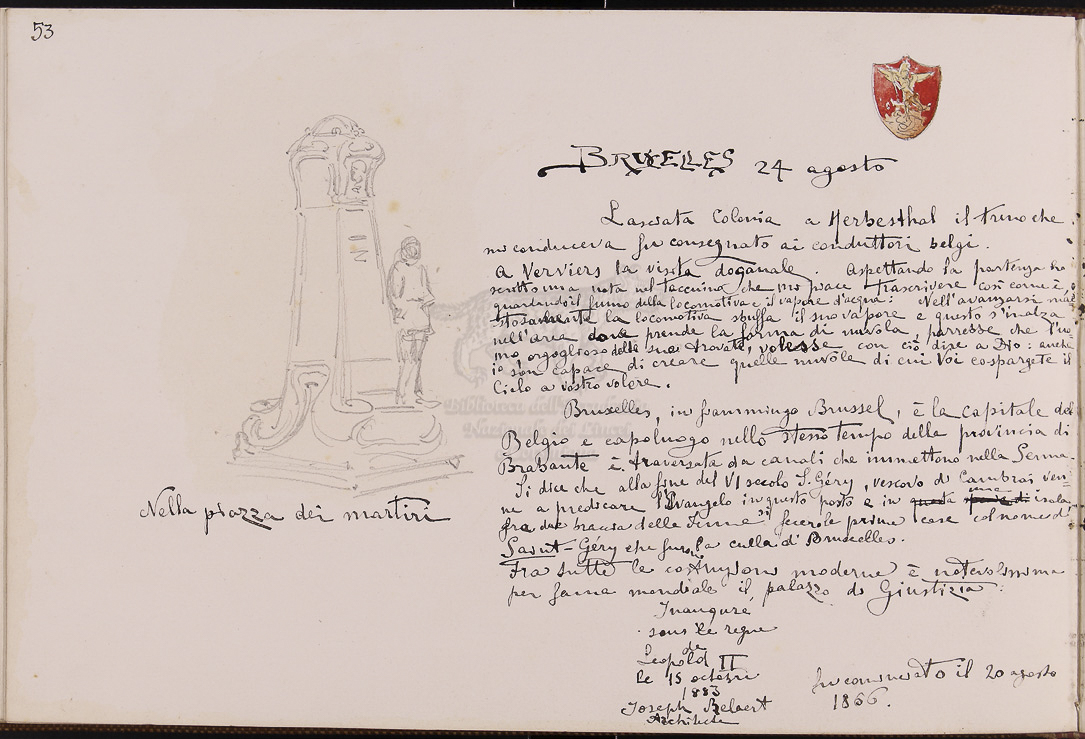 53
BRUXELLES 24 agosto
Lasciata Colonia a Herbesthal il treno che
mi conduceva fu consegnato ai conduttori belgi.
A Verviers la visita doganale. Aspettando la partenza ho
scritto una nota nel taccuino che mi piace trascrivere così com'è,
guardando il fumo della locomotiva e il vapore d'acqua: Nell'avanzarsi mae
stosamente la locomotiva sbuffa il suo vapore e questo s'inalza
nell'aria dove prende la forma di nuvola, parrebbe che l'uo
mo, orgoglioso delle sue trovate, volesse con ciò dire a Dio: anche
io son capace di creare quelle nuvole di cui Voi cospargete il
Cielo a vostro volere.
Bruxelles, in fiammingo Brussel, è la capitale del
Belgio e capoluogo nello stesso tempo della provincia di
Brabante è traversata da canali che immettono nella Senna.
Si dice che alla fine del VI secolo S. Géry, vescovo di Cambrai ven-
ne a predicare l'Evangelo in questo posto e in isola
fra due braccia della Senne si fecero le prime case col nome di
Saint-Géry che furon la culla di Bruxelles.
Fra tutte le costruzioni moderne è notevolissima
per fama mondiale il palazzo di Giustizia:
Inauguré
sous le regne
de
Leopold II
le 15 octobre
1883
Joseph Pelaert
Architecte
fu cominciato il 20 agosto
1866.
Nella piazza dei martiri
Biblioteca dell'Accademia
Nazionale dei Lincei